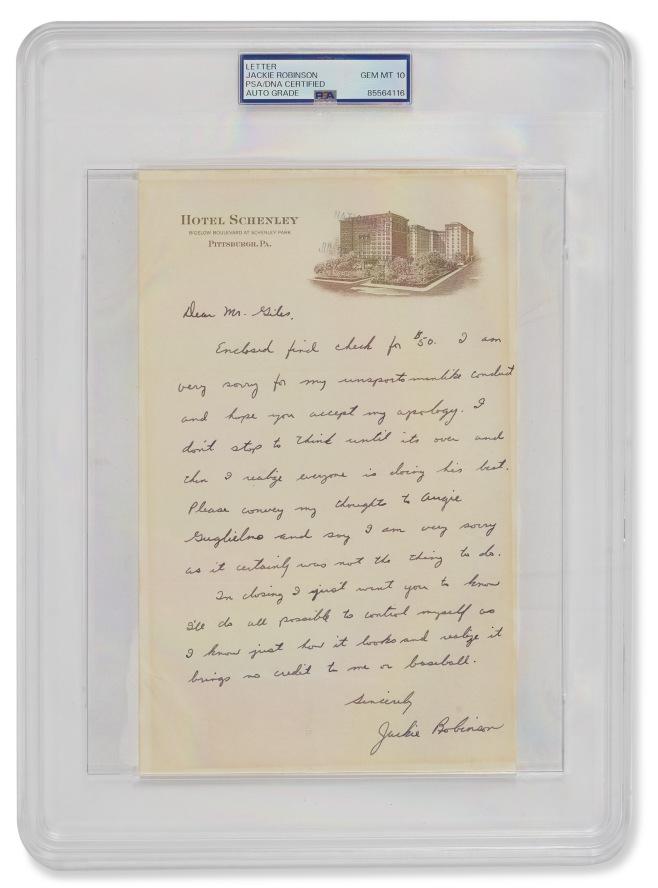 LETTER
JACKIE ROBINSON GEM MT 10
PSA/DNA CERTIFIED
AUTO GRADE PSA 85564116
HOTEL SCHENLEY
BIGELOW BOULEVARD AT SCHENLEY PARK
PITTSBURGH, PA.
Dear Mr. Giles,
Enclosed find check for $50. I am
very sorry for my unsportsmenlike conduct
and hope you accept my apology. I
don't stop to think until its over and
then I realize everyone is doing his best.
Please convey my thoughts to Augie
Guglielmo and say I am very sorry
as it certainly was not the thing to do.
In closing I just want you to know
I'll do all possible to control myself as
I know just how it looks and realize it
brings no credit to me or baseball.
Sincerely
Jackie Robinson